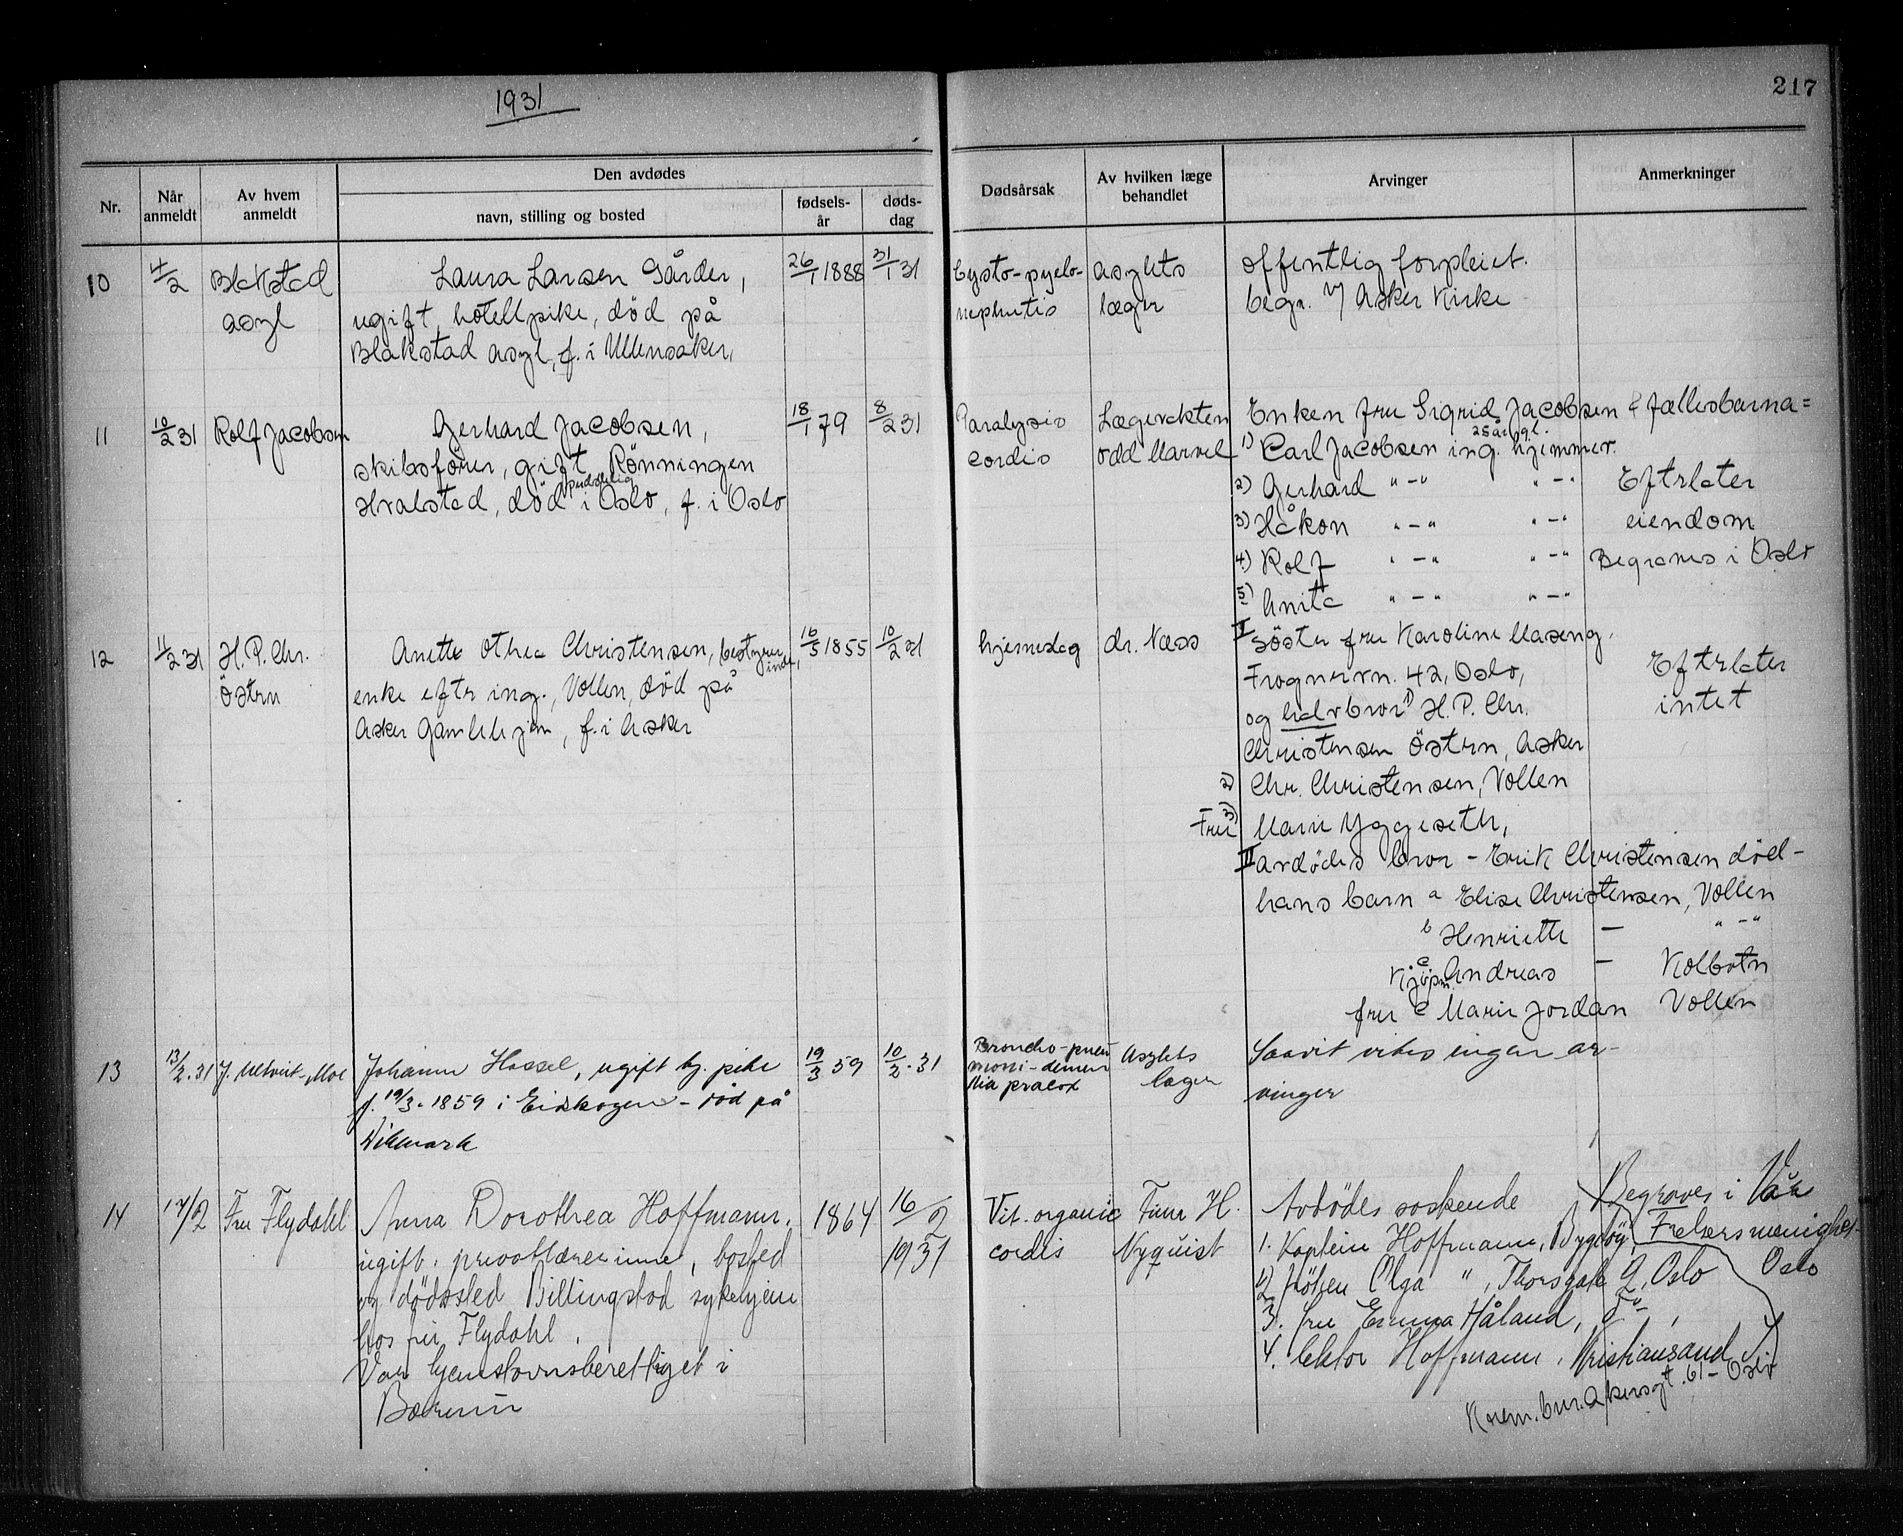 1931
217
Den avdødes
Nr.
Når anmeldt
Av hvem anmeldt
navn, stilling og bosted
fødselsår
dødsdag
Dødsårsak
Av hvilken læge behandlet
Arvinger
Anmerkninger
10 4/2 Blakstad Laura Larsen Gårder, 26/1 1888 31/1 31 Cysto-pyelo- asylets offentlig forpleiet.
asyl ugift, hotellpike, død på nephritis læger begr. v/ Asker Kirke
Blakstad asyl, f. i Ullensaker,
11 10/2 31 Rolf Jacobsen Gerhard Jacobsen, 18/1 79 8/2 31 Paralysis Lægevakten Enken fru Sigrid Jacobsen & fællesbarna=
skibsfører, gift, Rønningen cordis Odd Marvel 1) Carl Jacobsen 25 år ing. hjemmev.
Hvalstad, død pludselig i Oslo, f. i Oslo 2) Gerhard " – " " – " Efterlater
3) Håkon " – " " – " eiendom
4) Rolf " – " " – " Begraves i Oslo
5) Anita " – " " – "
12 11/2 31 H. P. Chr. Anette Othea Christensen, bestyrerinde, 16/5 1855 10/2 31 hjerneslag dr. Næss I søster fru Karoline Maseng,
Østern enke efter ing., Vollen, død på Frognervn. 42, Oslo, Efterlater
Asker Gamlehjem, f. i Asker og halvbror 1) H. P. Chr. intet
Christensen Østern, Asker
2) Chr. Christensen, Vollen
Fru 3) Marie Yggeseth,
II avdødes bror – Erik Christensen død –
hans barn a Elise Christensen, Vollen
b Henriette – " – "
Kjøpm. c Andreas – Kolbotn
fru Marie Jordan Vollen
13 13/2. 31 J. Ultveit-Moe Johanne Hassel, ugift tj. pike 19/3 59 10/2. 31 Broncho-pneu Asylets Saavit vites ingen ar-
f. 19/3. 1859 i Eidskogen – død på moni – demen læger vinger
Dikemark tia præcox
14 17/2 Fru Flydahl Anna Dorothea Hoffmann. 1864 16/2 1931 Vit. organic Finn H. Avdødes søskende Begraves i Vår
ugift. privatlærerinne, bosted cordis Nyquist 1. Kaptein Hoffmann, Bygdøy, Frelsersmenighet
og dødssted Billingstad sykehjem 2) frøken Olga ", Thorsgate 9, Oslo Oslo
hos fru Flydahl. 3. fru Emma Håland,
Var hjemstavnsberettiget i 4. lektor Hoffmann, Kristiansand S
Bærum
Krem. bur. Akersgt. 61 – Oslo